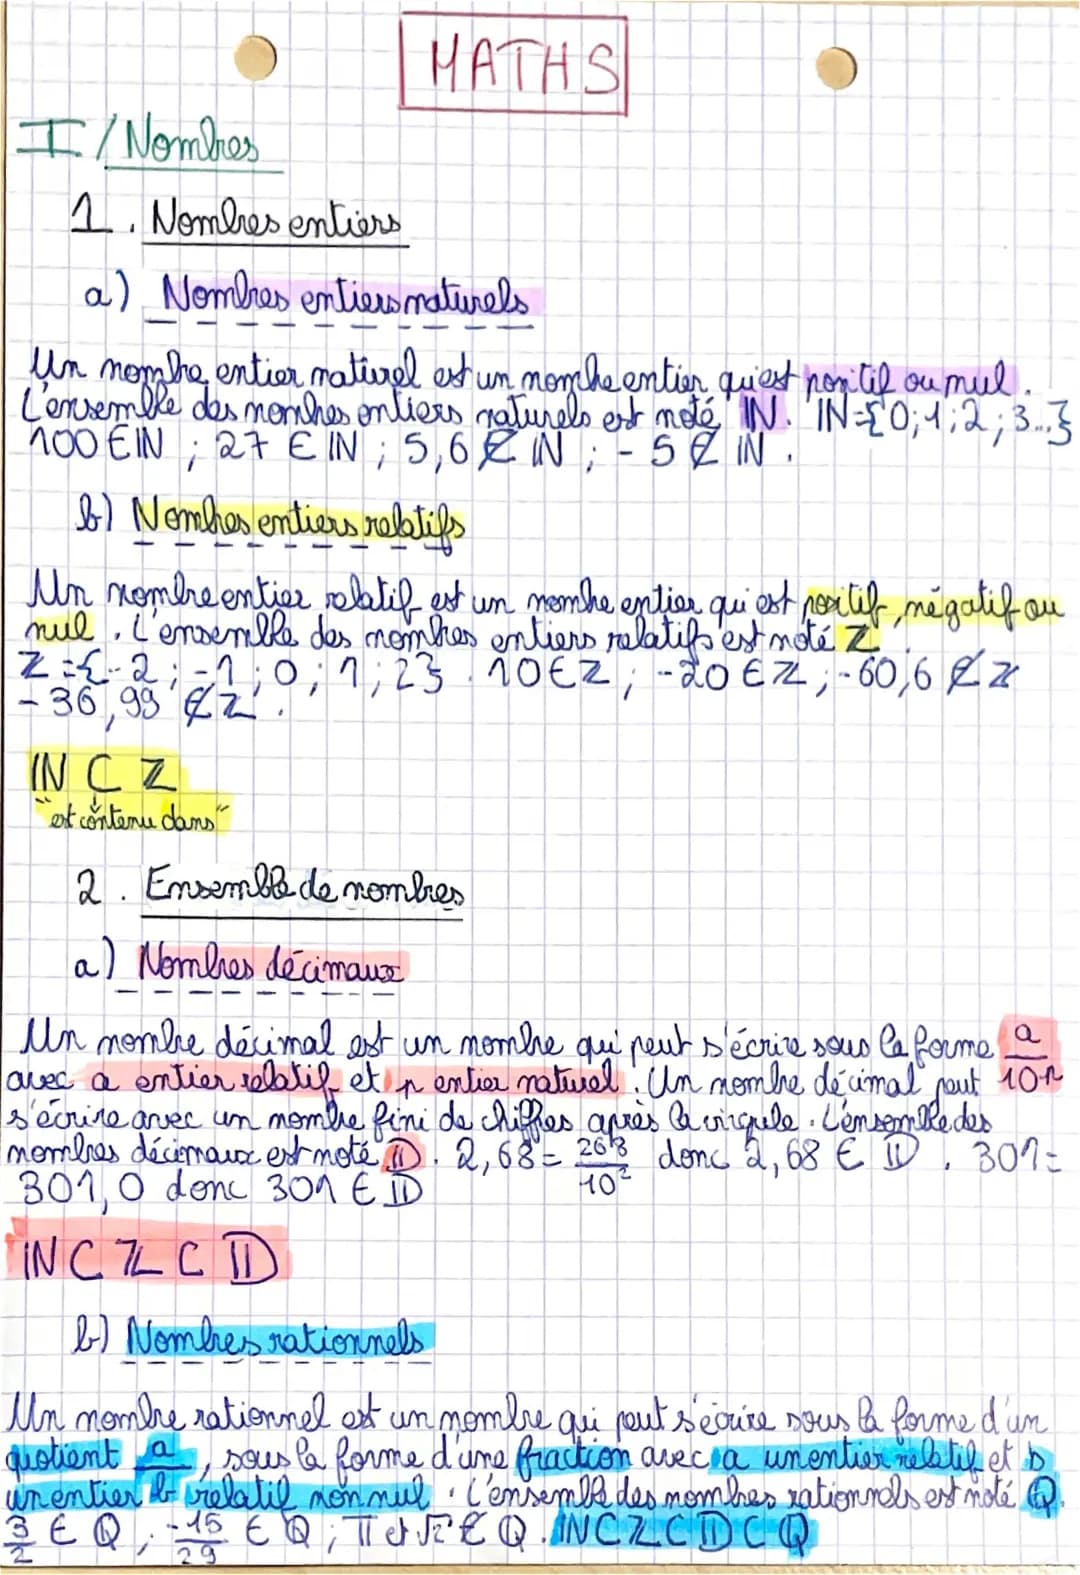 MATHS
I/ Nombres
1. Nombres entiers
a) Nombres entiers naturels
Un nombre entier naturel est un nombre entier qui est positif ou nul.
L'ensemble des nombres entiers naturels est noté ℕ. ℕ={0;1;2;3...}
100 ∈ ℕ ; 27 ∈ ℕ ; 5,6 ∉ ℕ ; -5 ∉ ℕ.
b) Nombres entiers relatifs
Un nombre entier relatif est un nombre entier qui est positif, négatif ou
nul. L'ensemble des nombres entiers relatifs est noté ℤ
ℤ={..-2 ; -1 ; 0 ; 1 ; 2}. 10 ∈ ℤ ; -20 ∈ ℤ ; -60,6 ∉ ℤ
-36,99 ∉ ℤ.
ℕ ⊂ ℤ
"est contenu dans"
2. Ensemble de nombres
a) Nombres décimaux
Un nombre décimal est un nombre qui peut s'écrire sous la forme a/10ⁿ
avec a entier relatif et n entier naturel. Un nombre décimal peut
s'écrire avec un nombre fini de chiffres après la virgule. L'ensemble des
nombres décimaux est noté 𝔻. 2,68 = 268/10² donc 2,68 ∈ 𝔻. 301=
301,0 donc 301 ∈ 𝔻
ℕ ⊂ ℤ ⊂ 𝔻
b) Nombres rationnels
Un nombre rationnel est un nombre qui peut s'écrire sous la forme d'un
quotient a/b, sous la forme d'une fraction avec a un entier relatif et b
un entier b relatif non nul. L'ensemble des nombres rationnels est noté ℚ.
3/2 ∈ ℚ ; -15/29 ∈ ℚ ; π et √2 ∉ ℚ. ℕ ⊂ ℤ ⊂ 𝔻 ⊂ ℚ